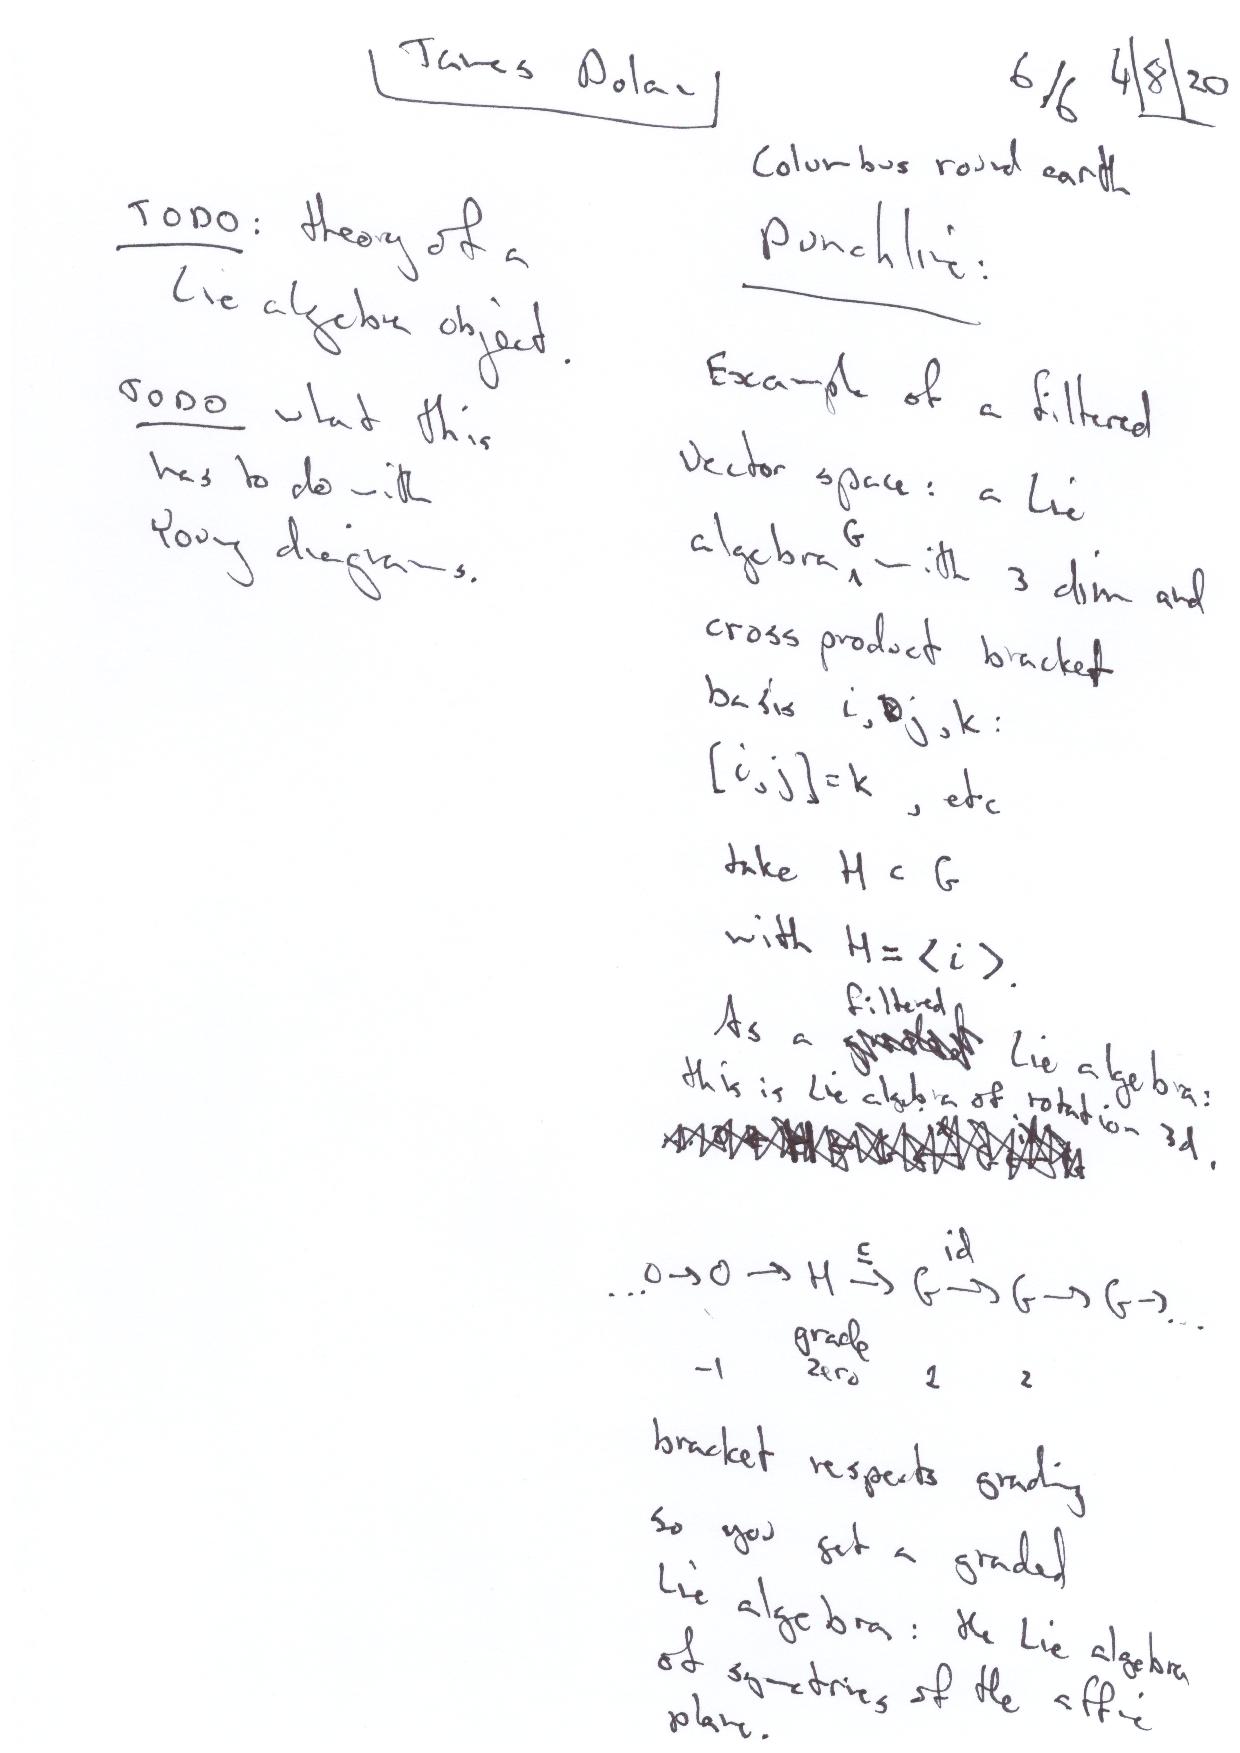 James Dolan
6/6 4/8/20
Columbus round earth
punchline:
TODO: theory of a
Lie algebra object.
TODO what this
has to do with
Young diagrams.
Example of a filtered
vector space: a Lie
algebra G with 3 dim and
cross product bracket
basis i, j, k:
[i,j]=k, etc
take H ⊂ G
with H = <i>.
As a filtered Lie algebra:
this is Lie algebra of rotation 3d.
...0→0 → H ⊆→ G id→ G → G →...
-1 grade zero 1 2
bracket respects grading
so you get a graded
Lie algebra: the Lie algebra
of symetries of the affine
plane.